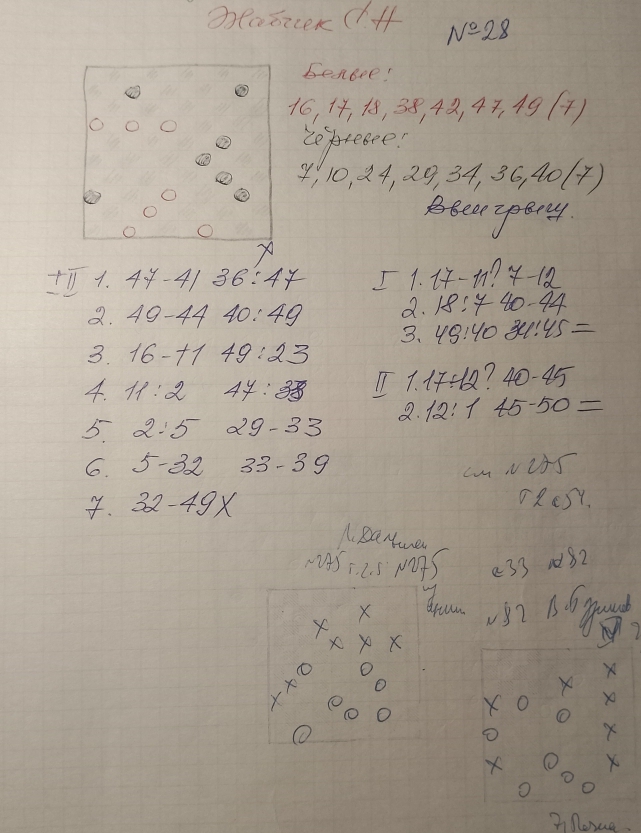 Жабчик С.Н
№28
Белые:
16, 17, 18, 38, 42, 47, 49 (7)
Чёрные:
7, 10, 24, 29, 34, 36, 40 (7)
Выигрыш.
+III 1. 47-41 36:47
2. 49-44 40:49
3. 16-11 49:23
4. 11:2 47:33
5. 2:5 29-33
6. 5-32 33-39
7. 32-49X
I 1. 17-11? 7-12
2. 18:7 40-44
3. 49:40 34:45=
II 1. 17-12? 40-45
2. 12:1 45-50=
см №275
т2 с54.
№275 т.2.5 №275
с33 №82
№82